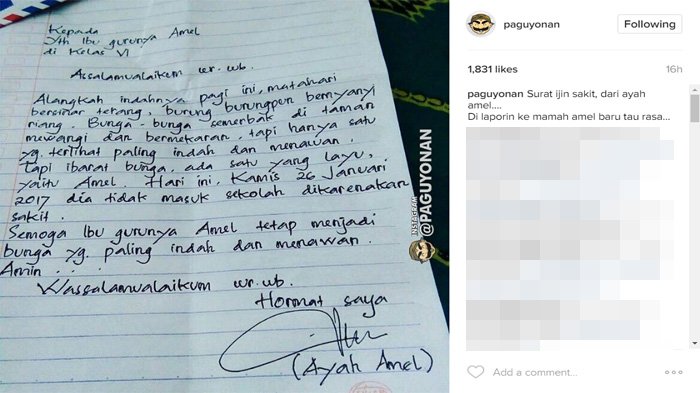 Kepada
Yth Ibu gurunya Amel
di Kelas VI
Assalamualaikum wr. wb.
Alangkah indahnya pagi ini, matahari
bersinar terang, burung burungpun bernyanyi
riang. Bunga-bunga semerbak di taman
mewangi dan bermekaran, tapi hanya satu
yg. terlihat paling indah dan menawan.
Tapi ibarat bunga, ada satu yang layu,
yaitu Amel. Hari ini, Kamis 26 Januari
2017 dia tidak masuk sekolah dikarenakan
sakit.
Semoga Ibu gurunya Amel tetap menjadi
bunga yg. paling indah dan menawan.
Amin...
Wassalamualaikum wr.wb.
Hormat saya
(Ayah Amel)
INSTAGRAM
@PAGUYONAN
paguyonan
Following
1,831 likes
16h
paguyonan Surat ijin sakit, dari ayah
amel....
Di laporin ke mamah amel baru tau rasa...
Add a comment...